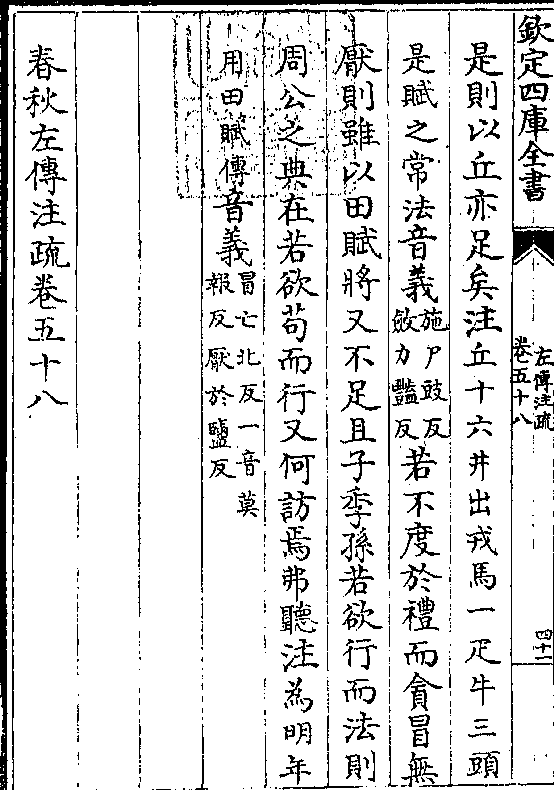 欽定四庫全書
左傳注疏
卷五十八
四十一
是則以丘亦足矣注丘十六井出戎馬一疋牛三頭
是賦之常法音義施尸豉反斂力豔反若不度於禮而貪冒無
厭則雖以田賦將又不足且子季孫若欲行而法則
周公之典在若欲苟而行又何訪焉弗聽注為明年
用田賦傳音義冒亡北反一音莫報反厭於鹽反
春秋左傳注疏卷五十八